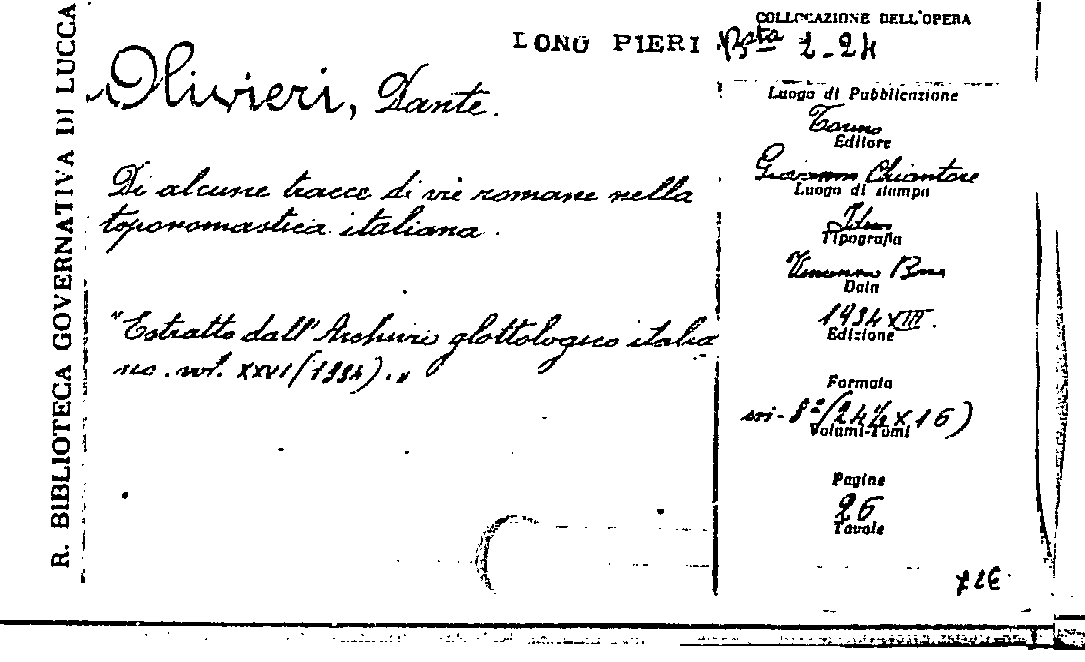 R. BIBLIOTECA GOVERNATIVA DI LUCCA
COLLOCAZIONE DELL'OPERA
LONO PIERI Bsta 2-24
Olivieri, Dante.
Di alcune tracce di vie romane nella
toponomastica italiana.
"Estratto dall'Archivio glottologico italia
no. vol. XXVI (1934)."
Luogo di Pubblicazione
Torino
Editore
Giovanni Chiantore
Luogo di stampa
Idem
Tipografia
Vincenzo Bona
Data
1934 XIII.
Edizione
Formato
in-8º (24½ x 16)
Volumi-Tomi
Pagine
26
Tavole